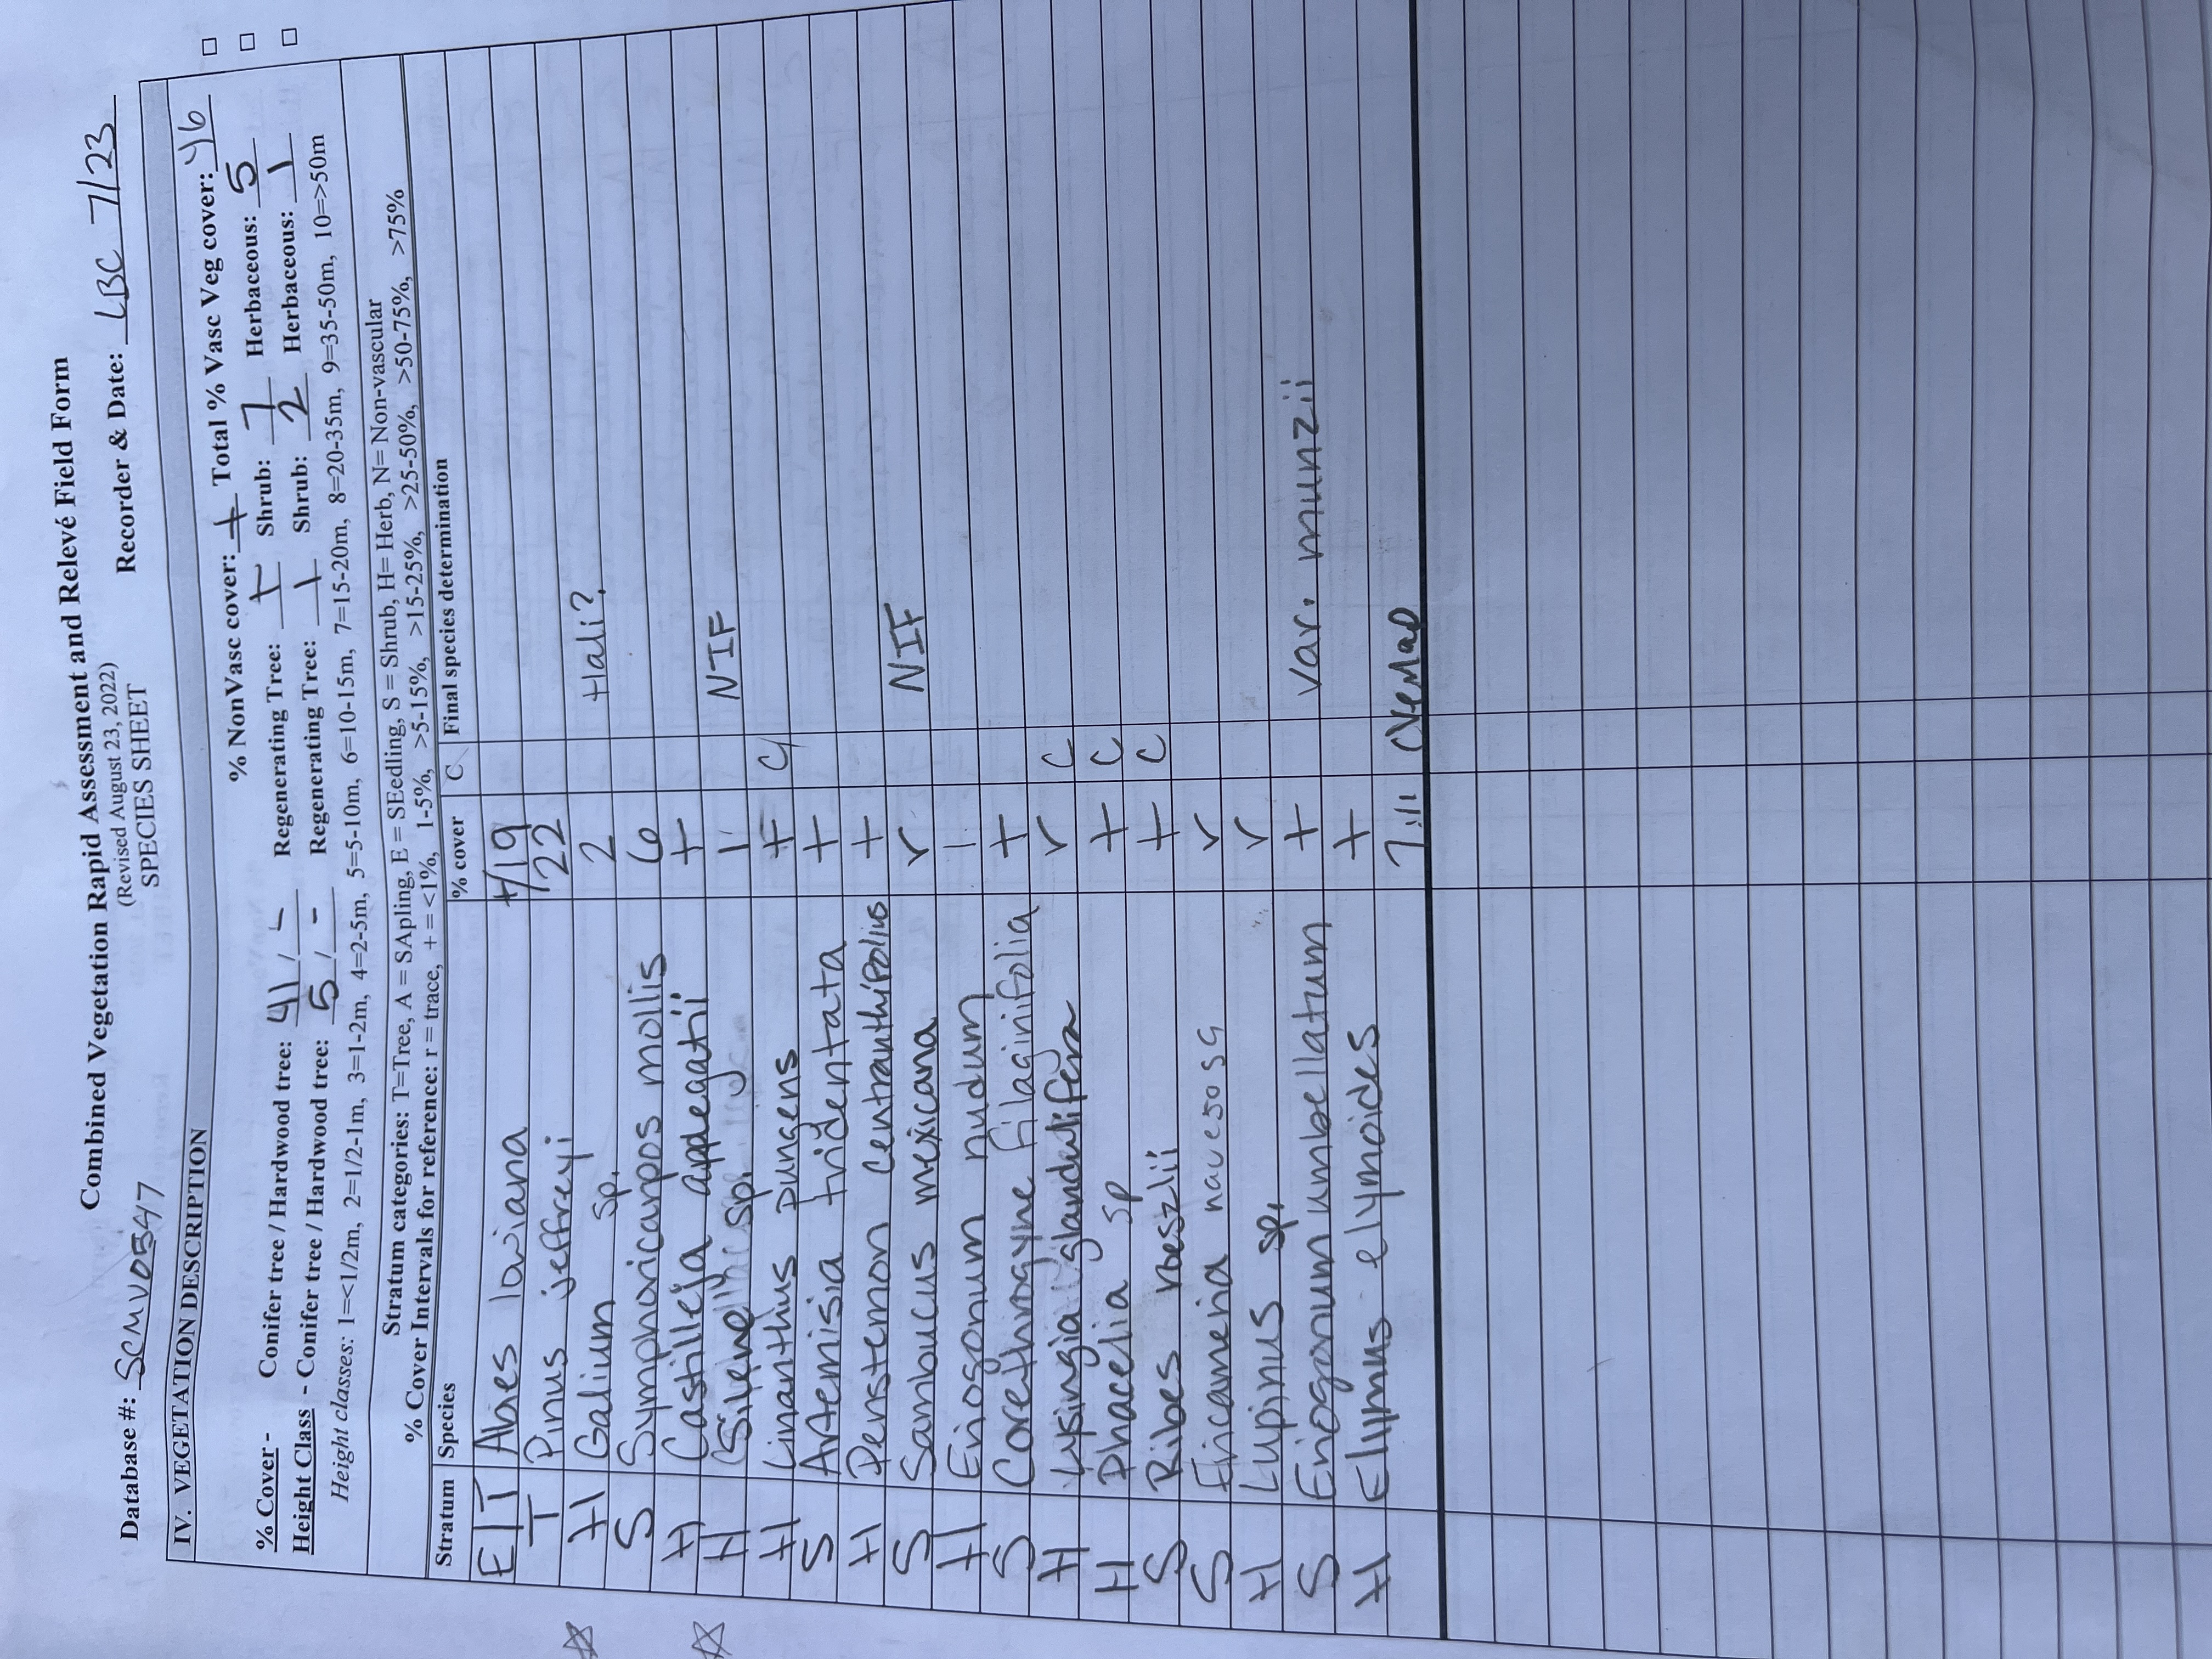 Combined Vegetation Rapid Assessment and Relevé Field Form
(Revised August 23, 2022)
SPECIES SHEET
Database #: SCMV0547 Recorder & Date: LBC 7/23
IV. VEGETATION DESCRIPTION
% NonVasc cover: + Total % Vasc Veg cover: 46
% Cover - Conifer tree / Hardwood tree: 41 / - Regenerating Tree: Shrub: 7 Herbaceous: 5
Height Class - Conifer tree / Hardwood tree: 5 / - Regenerating Tree: 1 Shrub: 2 Herbaceous: 1
Height classes: 1=<1/2m, 2=1/2-1m, 3=1-2m, 4=2-5m, 5=5-10m, 6=10-15m, 7=15-20m, 8=20-35m, 9=35-50m, 10=>50m
Stratum categories: T=Tree, A = SApling, E = SEedling, S = Shrub, H= Herb, N= Non-vascular
% Cover Intervals for reference: r = trace, + = <1%, 1-5%, >5-15%, >15-25%, >25-50%, >50-75%, >75%
Stratum Species % cover C Final species determination
E/T Abies lowiana +/19
T Pinus jeffreyi 22
H Galium sp. 2 Hali?
S Symphoricarpos mollis 6
H Castilleja applegatii +
H Silene sp. 1 NIF
H Linanthus pungens + C
S Artemisia tridentata +
H Penstemon centranthifolius +
S Sambucus mexicana r NIF
H Eriogonum nudum 1
S Corethrogyne filaginifolia +
H Lessingia glandulifera r C
H Phacelia sp + C
S Ribes roeszlii + C
S Ericameria nauesosa r
H Lupinus sp. r
S Eriogonum umbellatum + var. munzii
H Elymus elymoides +